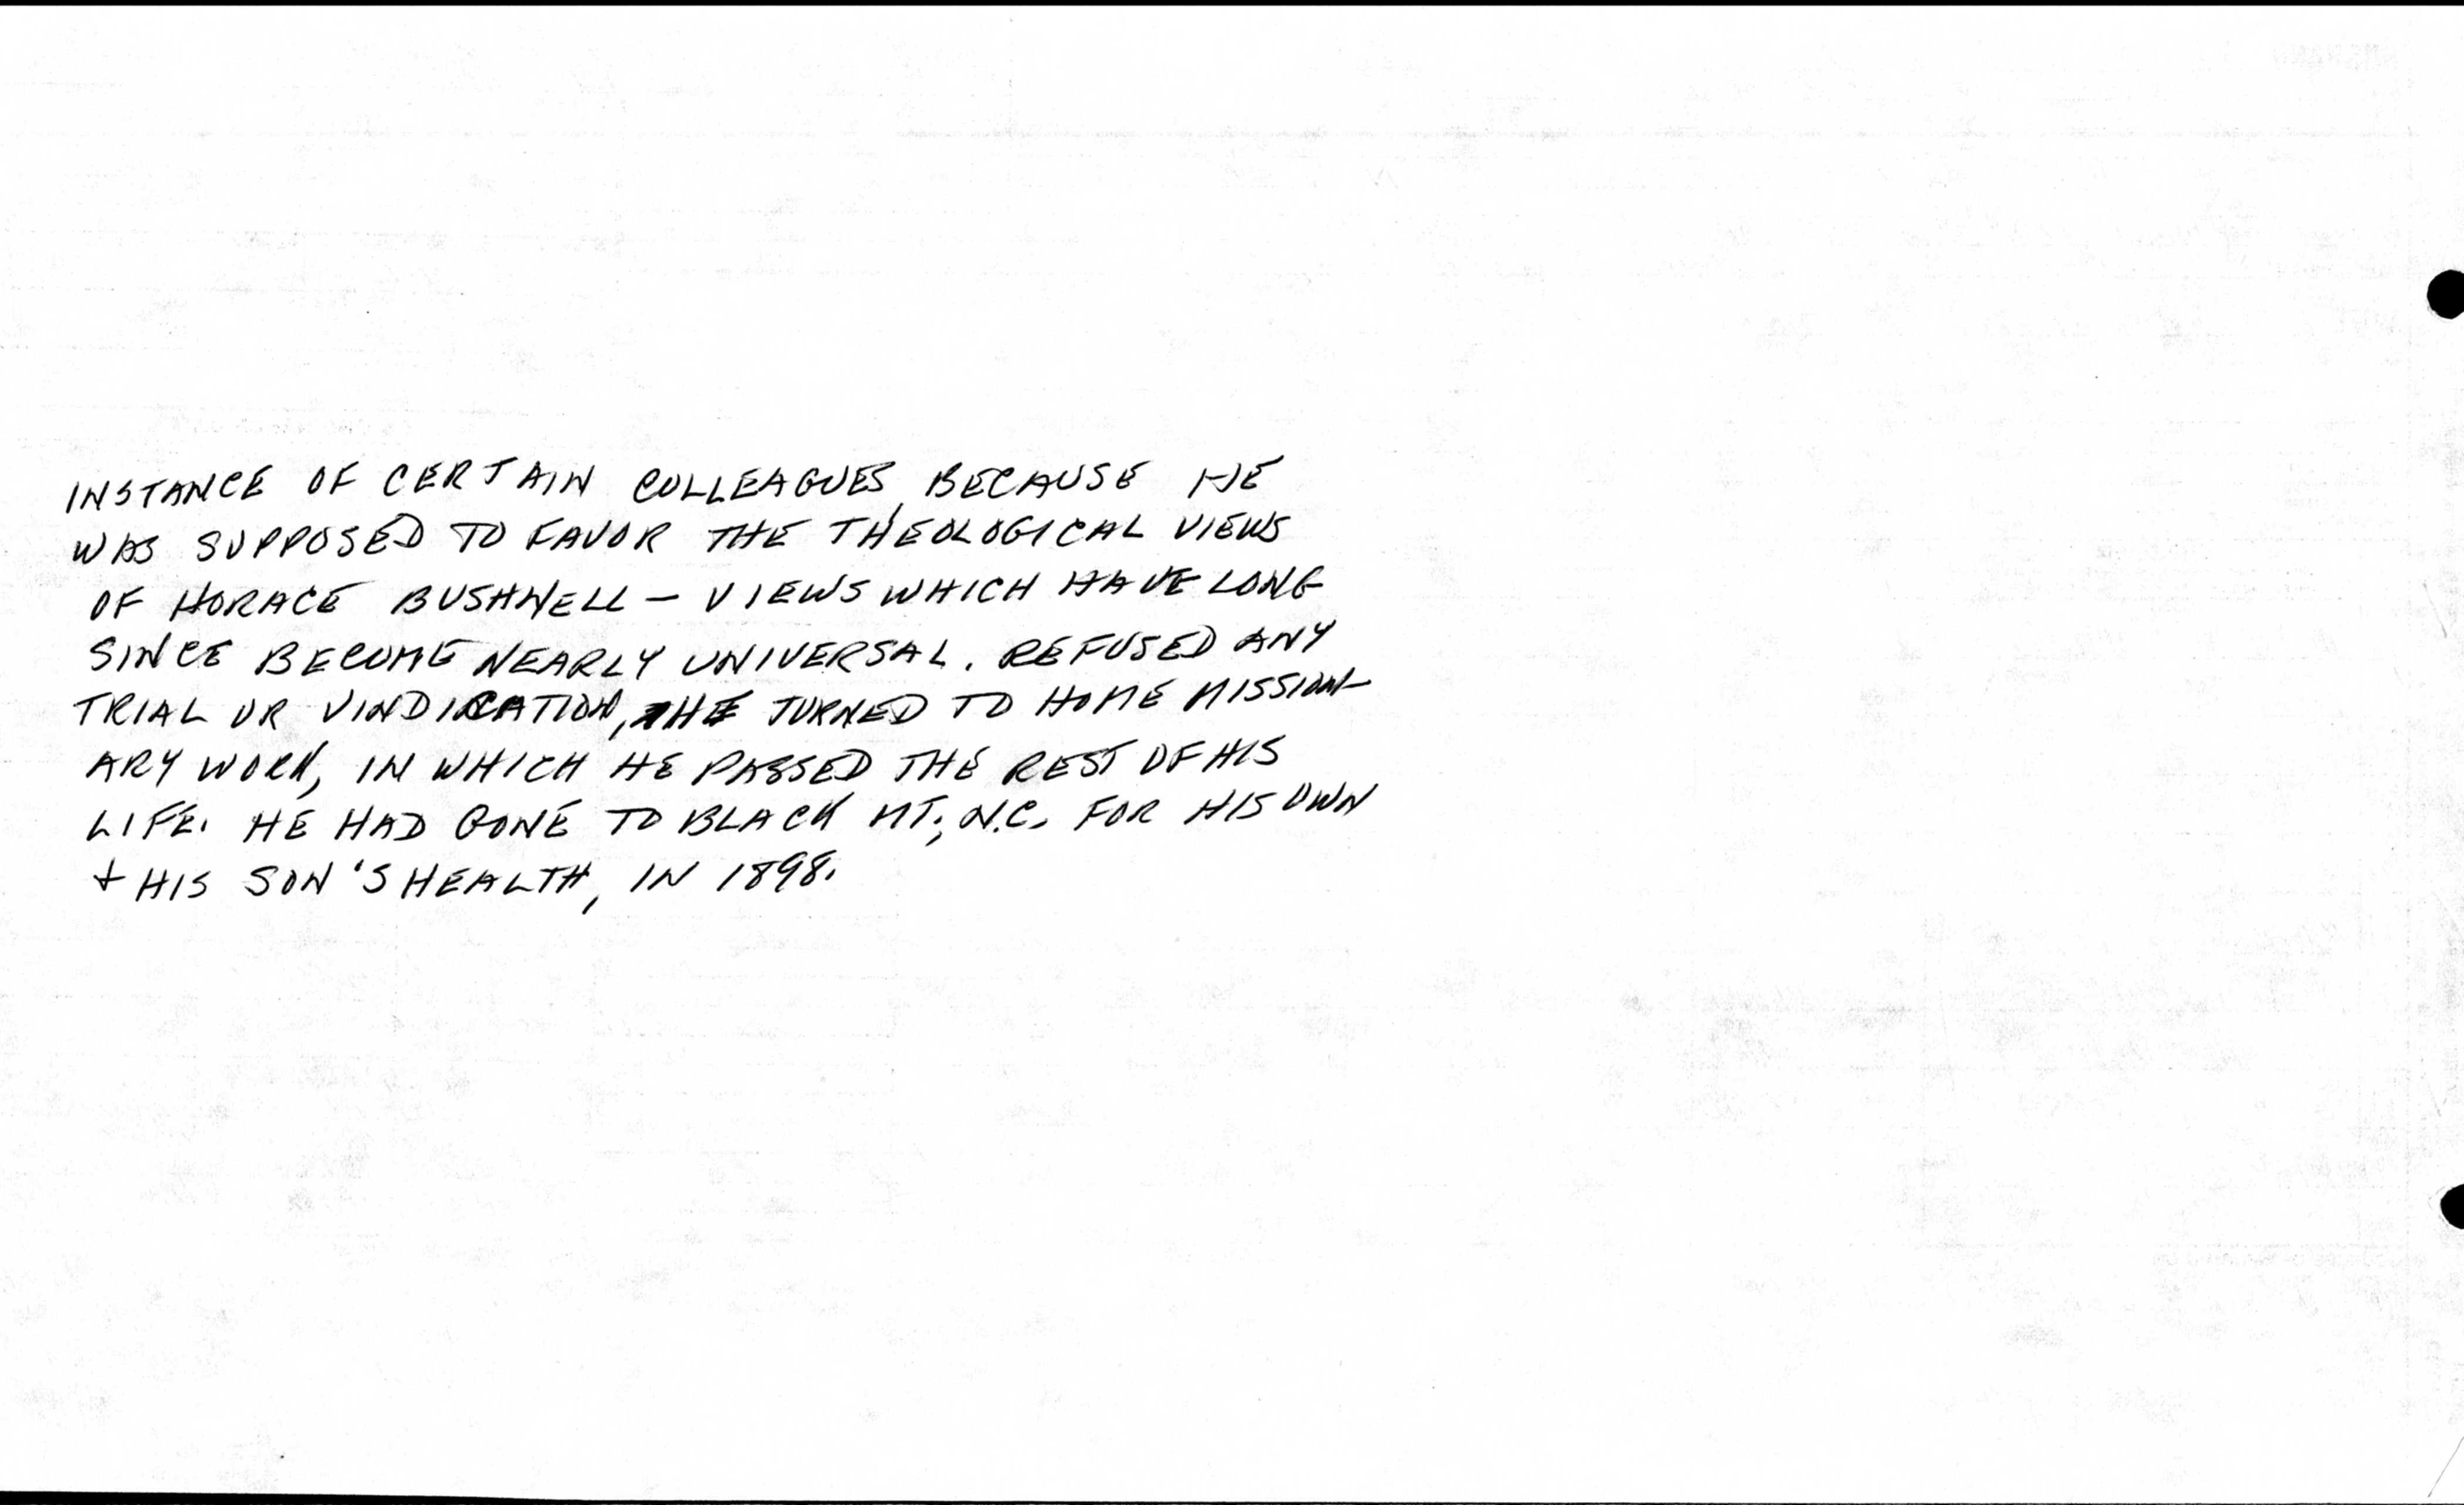 INSTANCE OF CERTAIN COLLEAGUES, BECAUSE HE
WAS SUPPOSED TO FAVOR THE THEOLOGICAL VIEWS
OF HORACE BUSHNELL – VIEWS WHICH HAVE LONG
SINCE BECOME NEARLY UNIVERSAL. REFUSED ANY
TRIAL OR VINDICATION, HE TURNED TO HOME MISSION-
ARY WORK, IN WHICH HE PASSED THE REST OF HIS
LIFE. HE HAD GONE TO BLACK MT., N.C. FOR HIS OWN
+ HIS SON'S HEALTH, IN 1898.